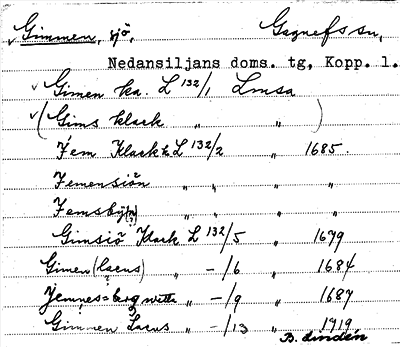 Gimmen, sjö, Gagnefs sn,
Nedansiljans doms. tg, Kopp. l.
Gimen ka. L 132/1 Lmsa
(Gims klack " " )
Fem Klack k L 132/2 " 1685.
Femensiön " " "
Femsbÿn(?) " " "
Gimsiö Klack L 132/5 " 1679
Gimen (lacus) " -/6 " 1684
Jemnes=berg " -/9 " 1687
Gimmen Lacus " -/13 " 1719
B. Lindén